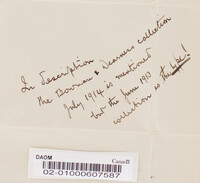 In description
the Bowman & Deamers collection
July 1914 is mentioned
but the June 1913
collection is the type!
DAOM
Canada
02-01000607587